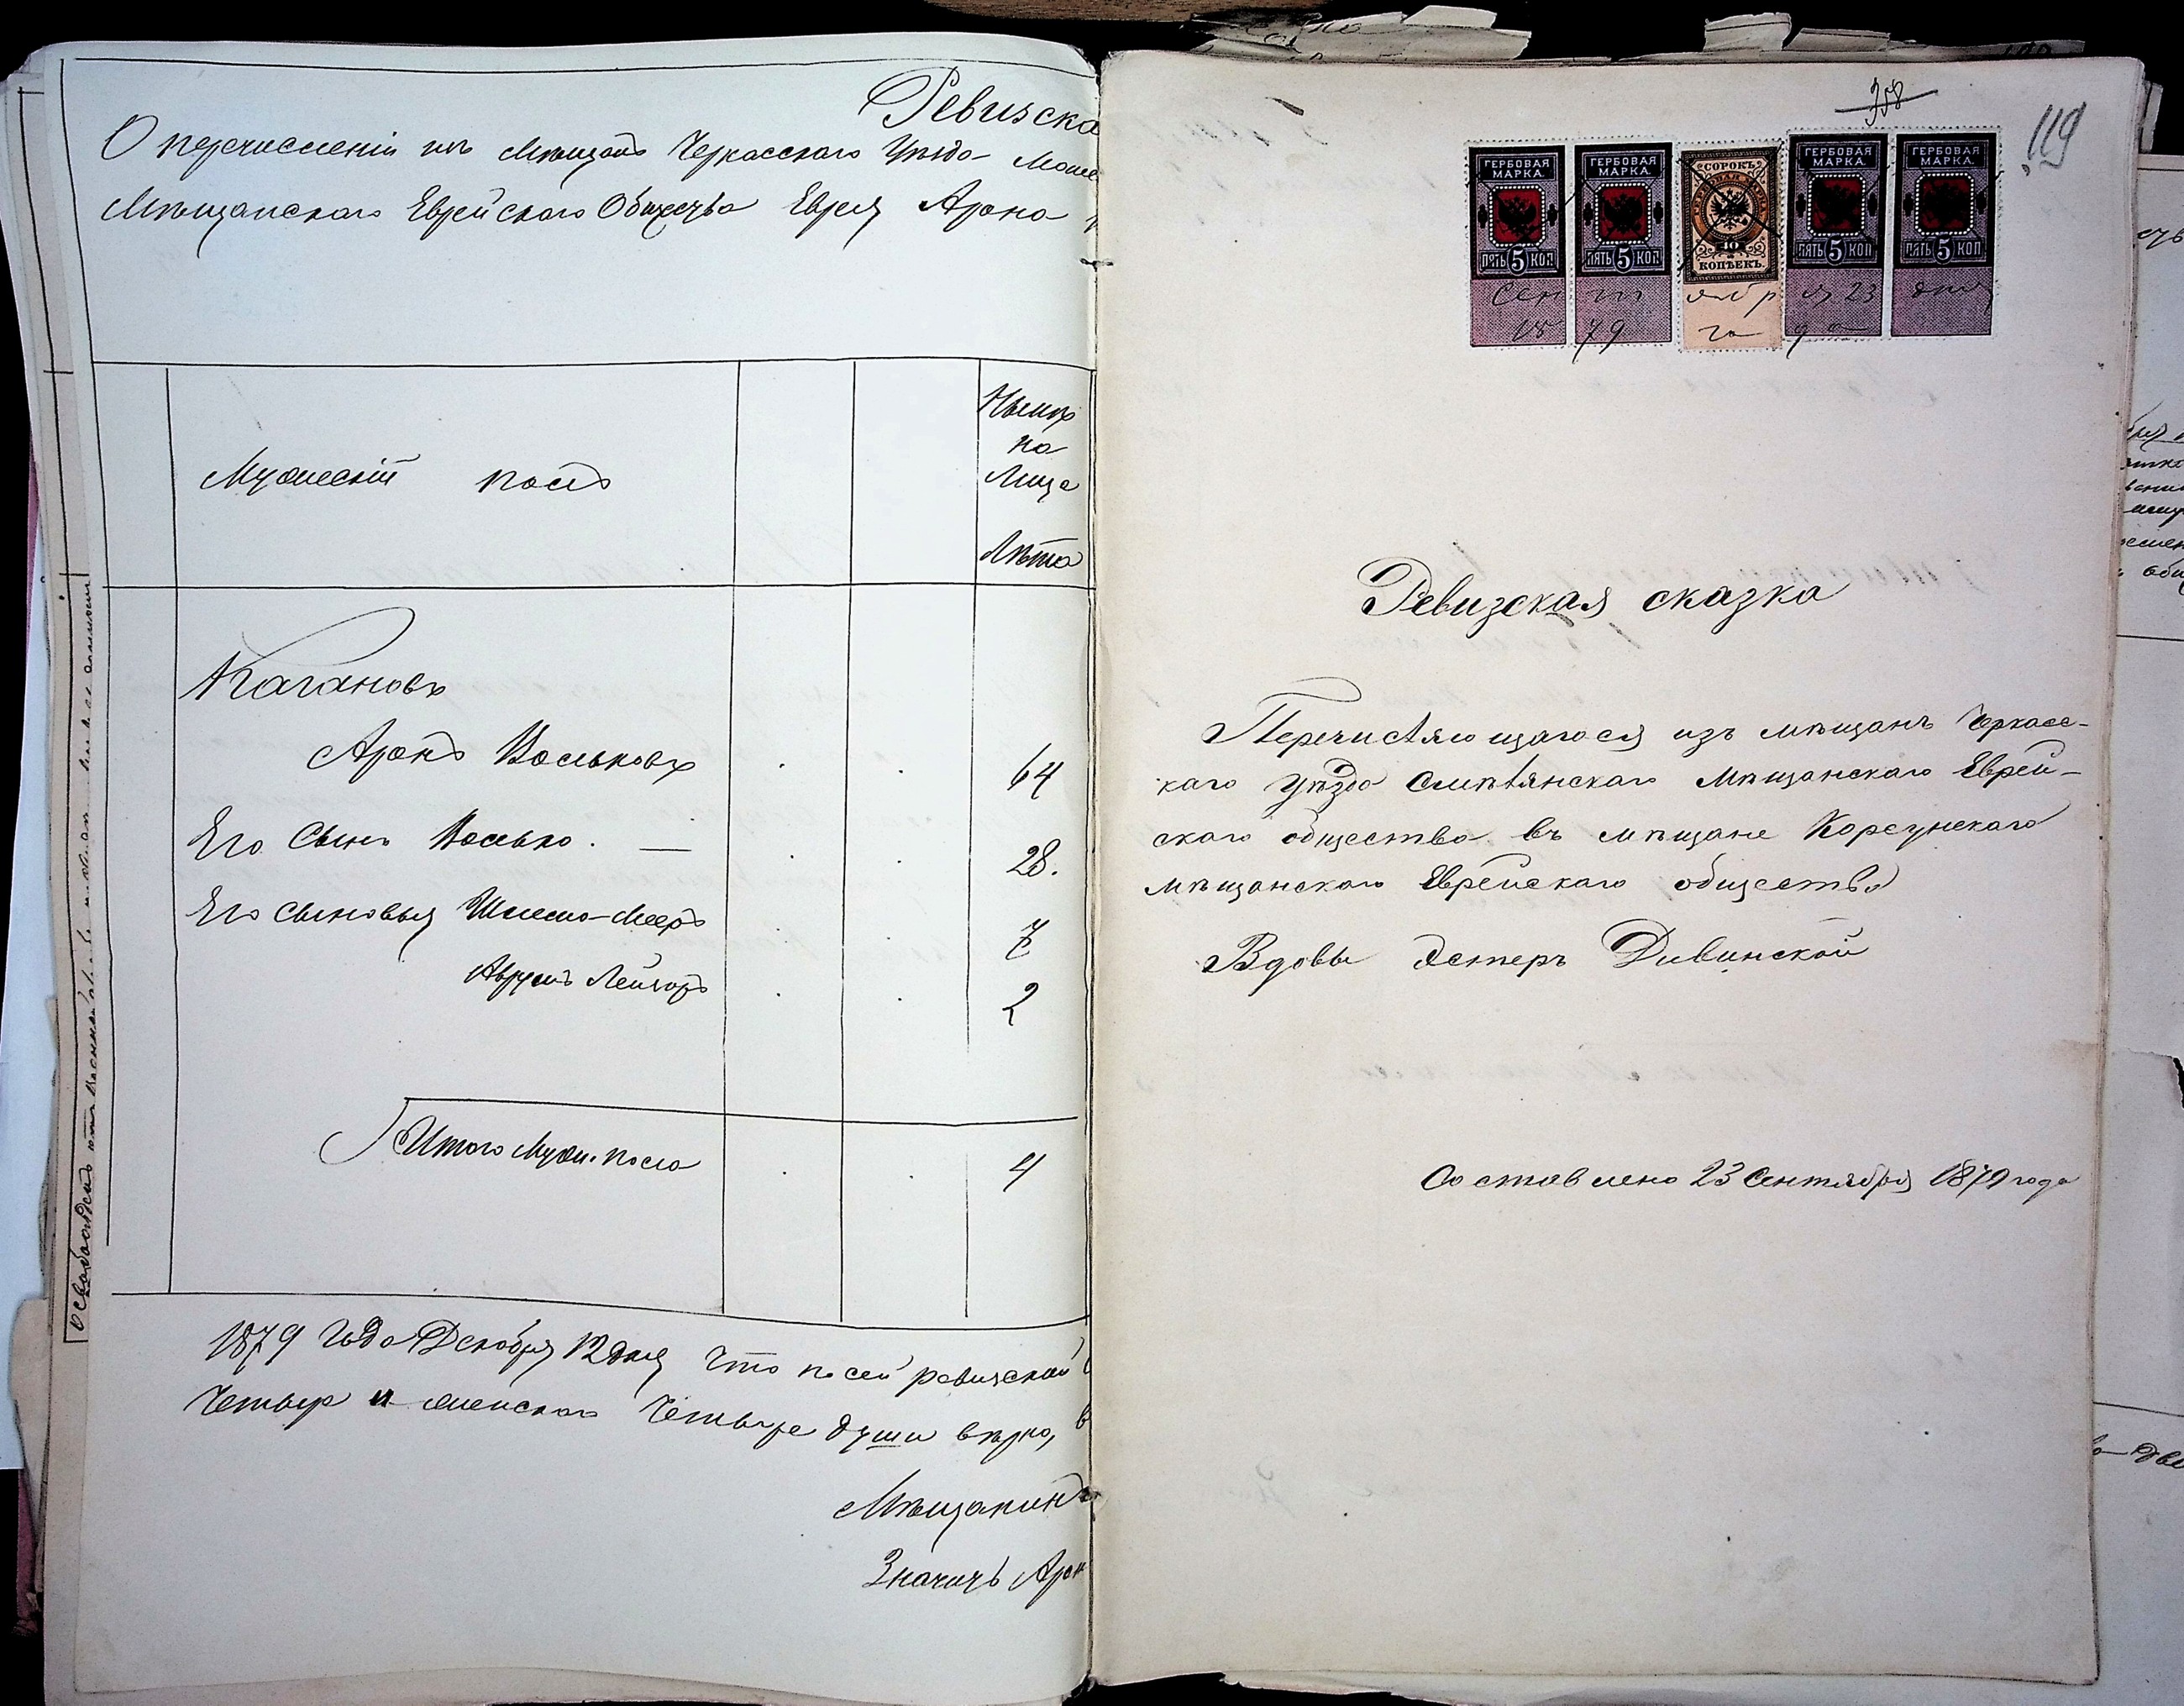 Ревизска
О перечисленіи изъ Мѣщанъ Черкасскаго Уѣзда Моше
Мѣщанскаго Еврейскаго Общества Еврея Арона
Мужескій полъ
Нынѣ
на
Лице
Лѣта
Кагановъ
Аронъ Воськовъ 64
Его Сынъ Иосько. — 28.
Его Сыновья Шлемо-Мееръ 7
Аврумъ Лейзоръ 2
Итого Муж. пола 4
1879 Года Декабря 12 дня Что по сей ревизской
Четыре и женскаго Четыре души вѣрно, в
Мѣщанинъ
Значитъ Арон
358
119
ГЕРБОВАЯ МАРКА. ГЕРБОВАЯ МАРКА. СОРОКЪ ГЕРБОВАЯ МАРКА. ГЕРБОВАЯ МАРКА.
ПЯТЬ 5 КОП ПЯТЬ 5 КОП 40 КОПѢЕКЪ ПЯТЬ 5 КОП ПЯТЬ 5 КОП
Сентября 23 дня
1879 года
Ревизская сказка
Перечисляющагося изъ мѣщанъ Черкасс-
каго уѣзда Смѣлянскаго Мѣщанскаго Еврей-
скаго общества въ мѣщане Корсунскаго
мѣщанскаго Еврейскаго общества
Вдовы Эстеръ Дивинской
Составлено 23 Сентября 1879 года